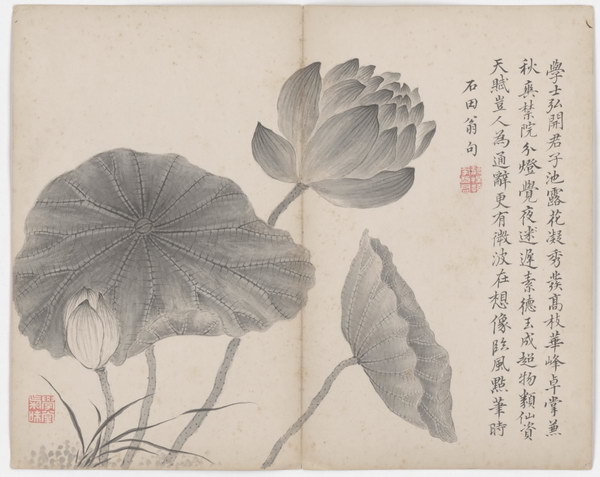 學士弘開君子池露花凝秀發高枝華峰卓掌兼
秋爽禁院分燈覺夜迷遲素德玉成超物類仙資
天賦豈人為通辭更有微波在想像臨風點筆時
石田翁句